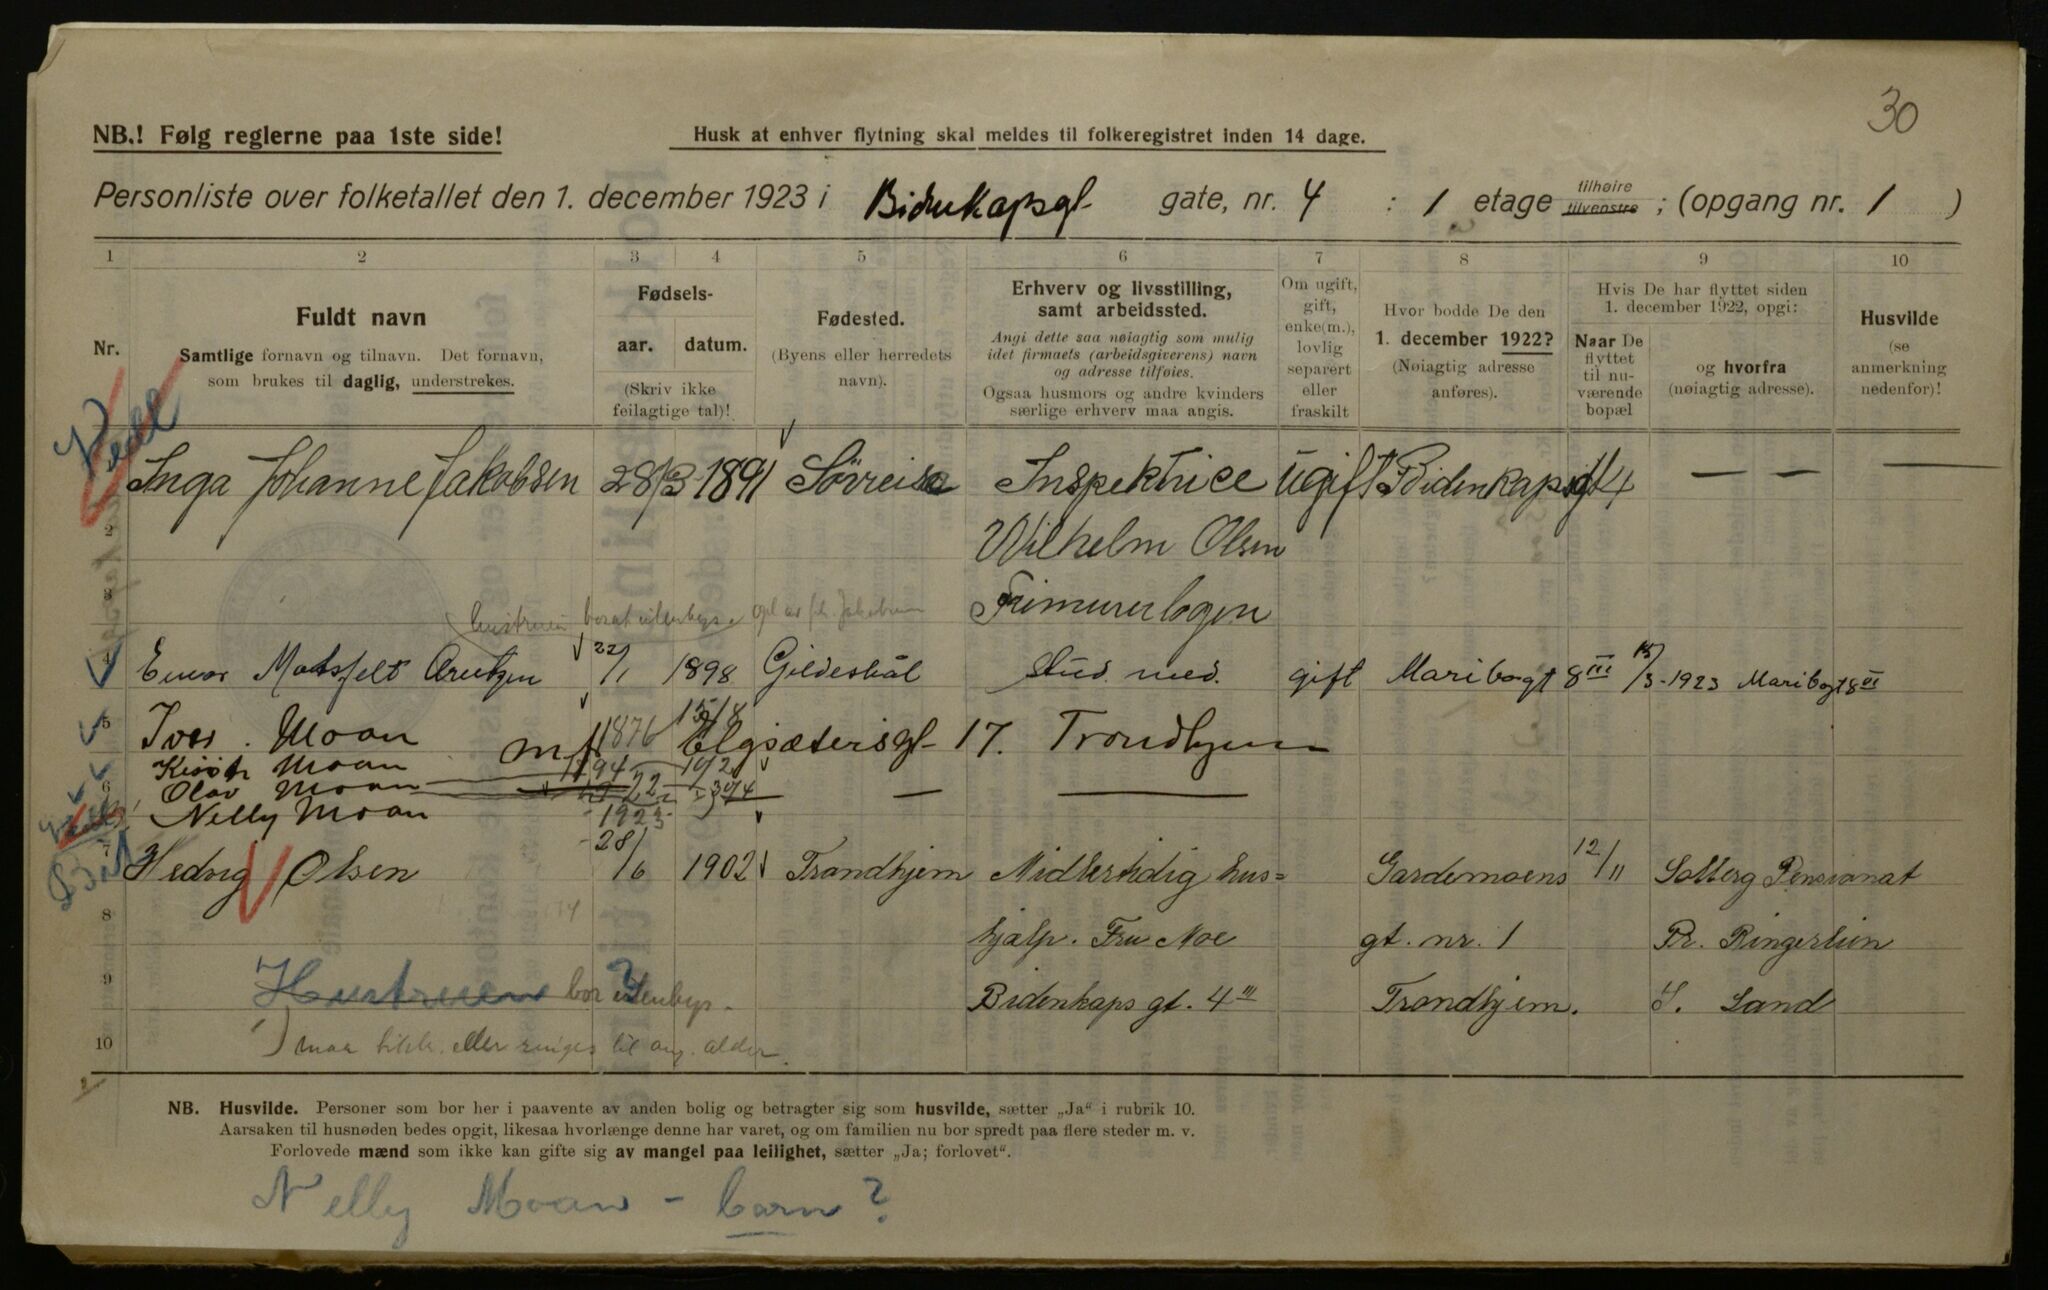 30
NB.! Følg reglerne paa 1ste side!
Husk at enhver flytning skal meldes til folkeregistret inden 14 dage.
Personliste over folketallet den 1. december 1923 i Bidenkapsgt gate, nr. 4 : 1 etage tilhøire tilvenstre ; (opgang nr. 1 )
1 2 3 4 5 6 7 8 9 10
Nr.
Fuldt navn
Samtlige fornavn og tilnavn. Det fornavn,
som brukes til daglig, understrekes.
Fødsels-
aar. datum.
(Skriv ikke
feilagtige tal)!
Fødested.
(Byens eller herredets
navn).
Erhverv og livsstilling,
samt arbeidssted.
Angi dette saa nøiagtig som mulig
idet firmaets (arbeidsgiverens) navn
og adresse tilføies.
Ogsaa husmors og andre kvinders
særlige erhverv maa angis.
Om ugift,
gift,
enke(m.),
lovlig
separert
eller
fraskilt
Hvor bodde De den
1. december 1922?
(Nøiagtig adresse
anføres).
Hvis De har flyttet siden
1. december 1922, opgi:
Naar De
flyttet
til nu-
værende
bopæl
og hvorfra
(nøiagtig adresse).
Husvilde
(se
anmerkning
nedenfor)!
Inga Johanne Jakobsen 28/3 1891 Sörreisa Inspektrice ugift Bidenkapsgt 4 — — —
2 Wilhelm Olsen
3 Frimurerlogen
hustruen bor utenbys
4 Einar Motzfelt Arntzen 22/1 1898 Gildeskål stud. med. gift Maribogt 8 III 15/3-1923 Maribogt 8 III
5 Iver Moan 1876 15/8 Elgsætersgt 17. Trondhjem
Moan 1894 10/2
6 Olav Moan
Nelly Moan 1923
7 Hedvig Olsen 28/6 1902 Trondhjem Midlertidig hus= Gardemoens 12/11 Solberg Pensionat
8 hjælp. Fru Moe gt. nr. 1 Pr. Ringerlien
9 Hustruen bor utenbys. Bidenkaps gt. 4 III Trondhjem. S. Land
10 maa eller ringes til ang. alder.
NB. Husvilde. Personer som bor her i paavente av anden bolig og betragter sig som husvilde, sætter „Ja“ i rubrik 10.
Aarsaken til husnøden bedes opgit, likesaa hvorlænge denne har varet, og om familien nu bor spredt paa flere steder m. v.
Forlovede mænd som ikke kan gifte sig av mangel paa leilighet, sætter „Ja; forlovet“.
Nelly Moan - barn?